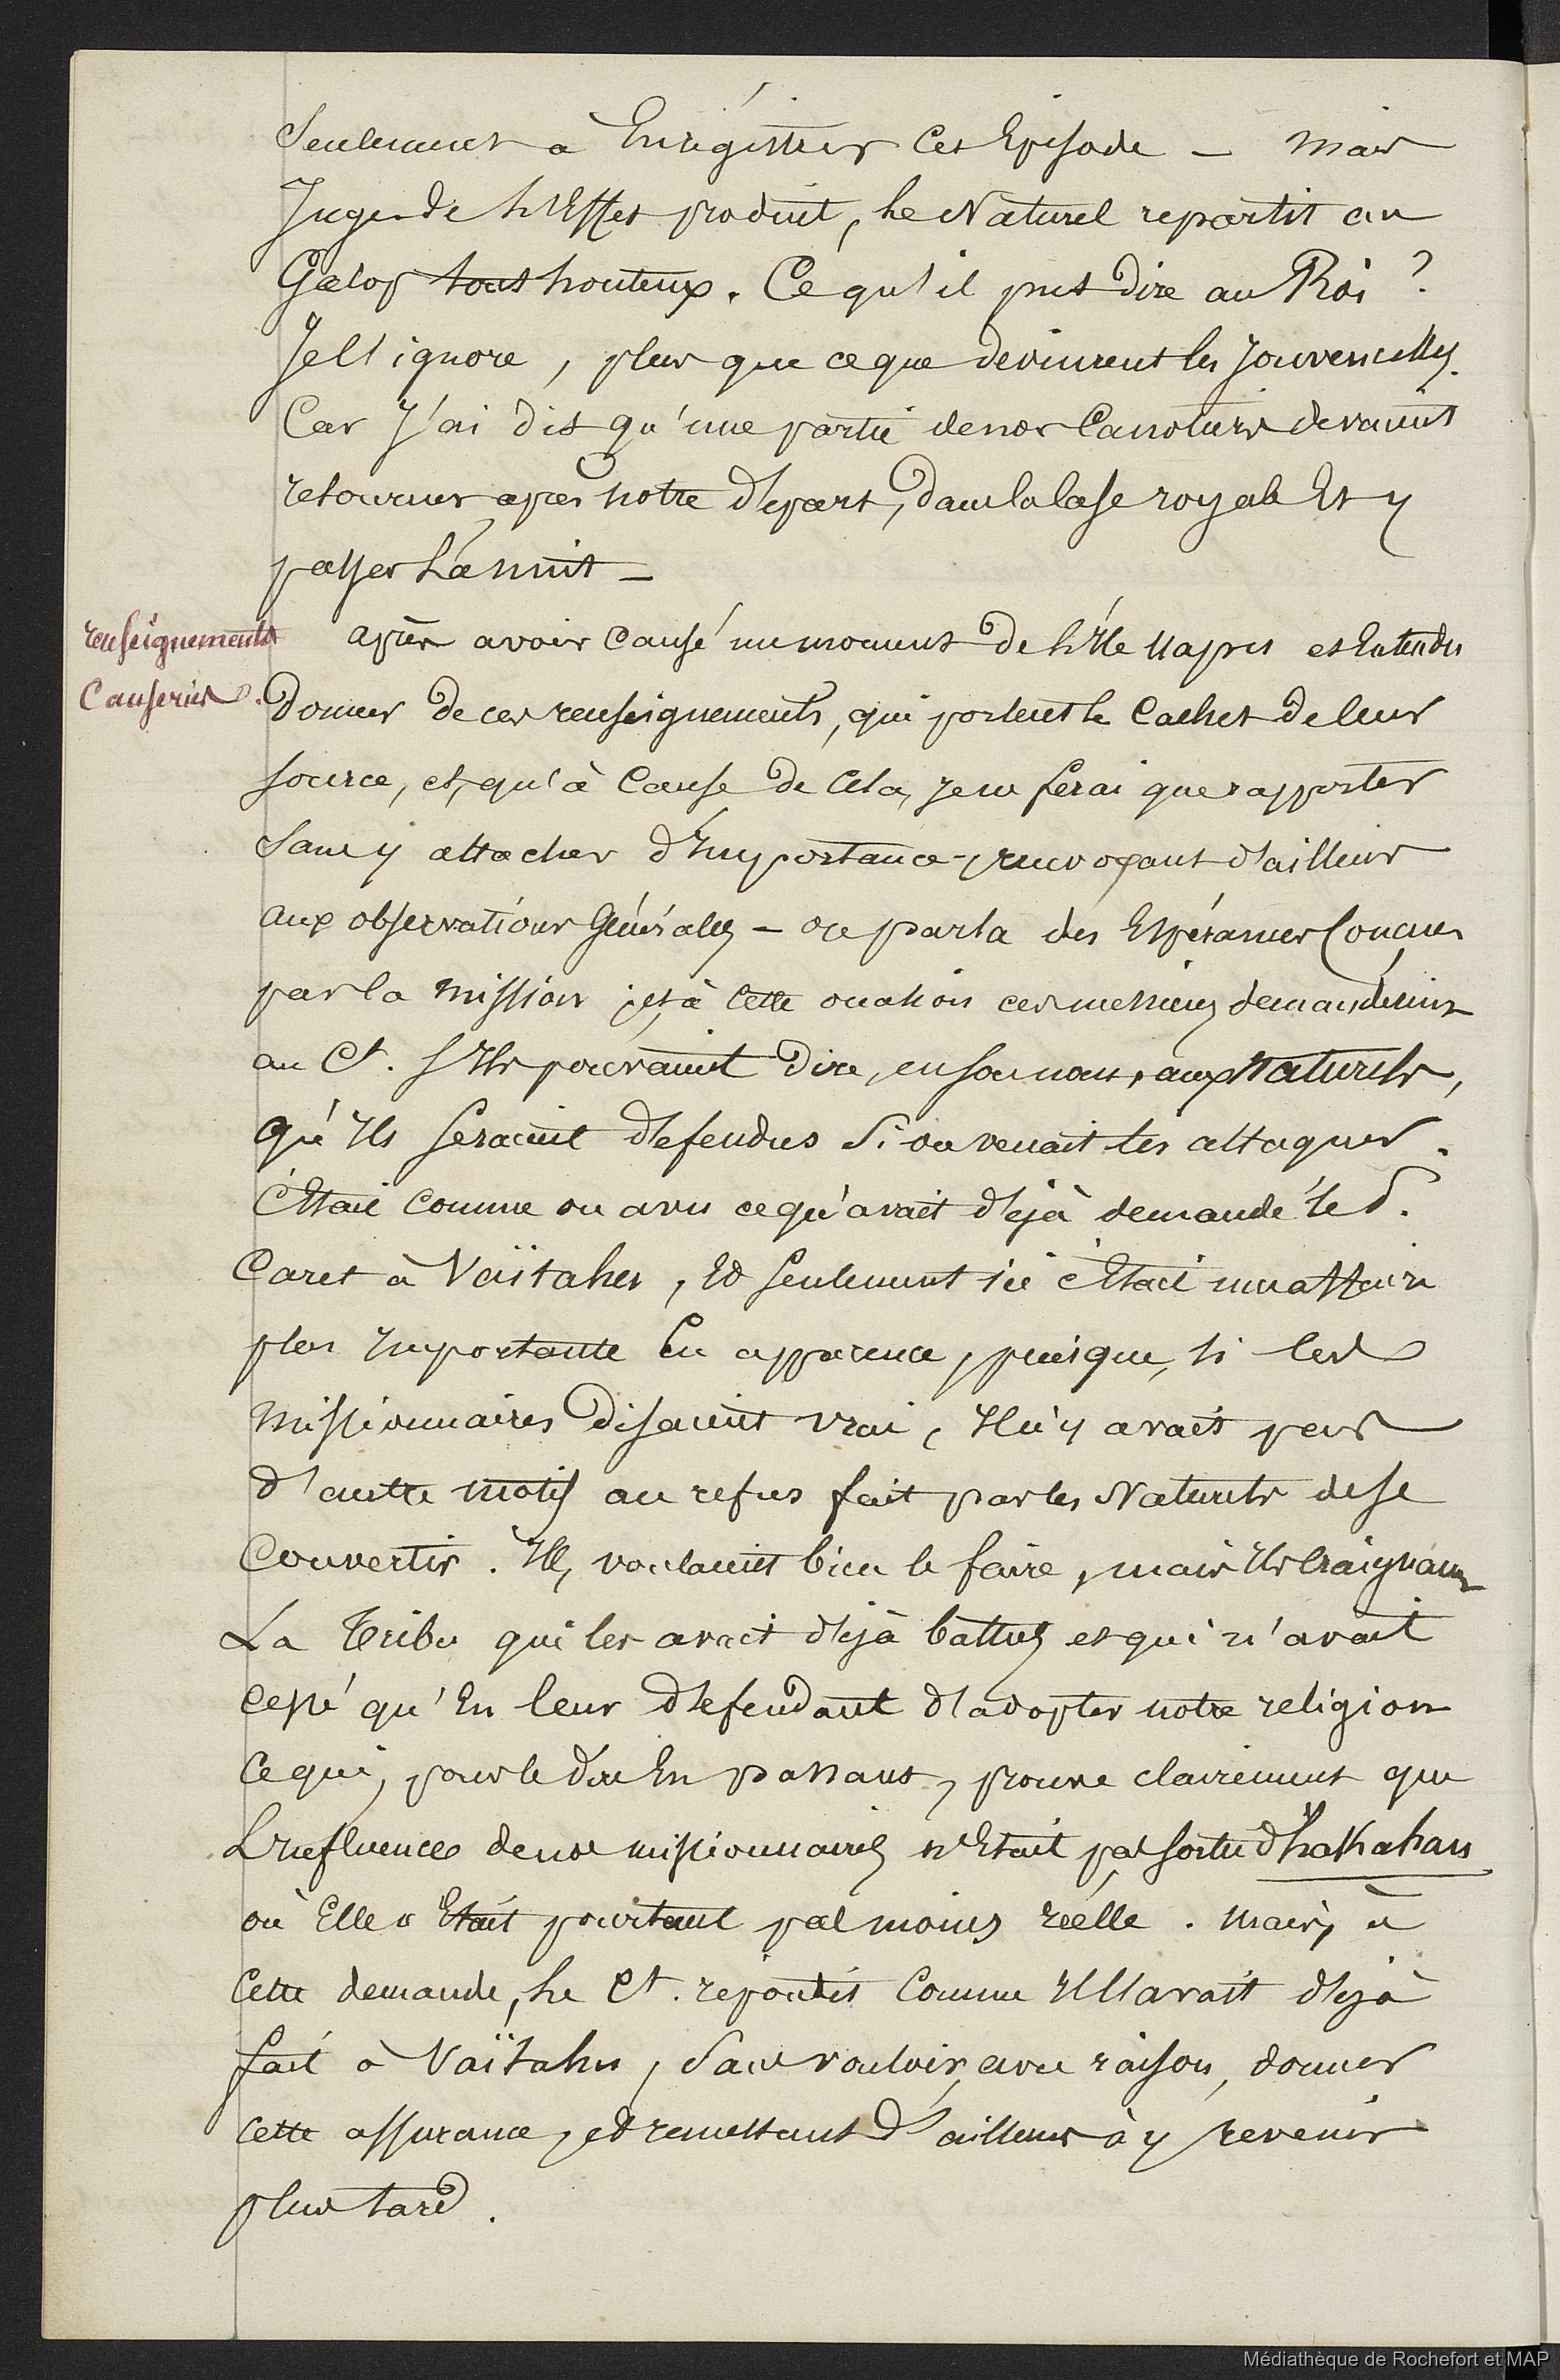 Seulement à Enrégistrer Cet Episode – mais
Jugez de L'Effet produit, Le Naturel repartit au
Galop tout honteux. Ce qu'il put Dire au Roi ?
Je l'ignore, plus que ce que devinrent les Jouvencelles.
Car J'ai dit qu'une partie de nos Canotiers devaient
retourner après notre départ, dans la Case royale Et y
passer La nuit –
renseignements
Causeries.
après avoir Causé un moment de L'Ile et Entendu
Donner de ces renseignements, qui portent le Cachet de leur
source, et, qu'à Cause de Cela, je ne ferai que rapporter
Sans y attacher d'Importance, renvoyant d'ailleurs
aux observations Générales – on parla des Espérances Conçues
par la mission ; et, à Cette occasion ces messieurs demandèrent
au Ct. S'Ils pouvaient Dire, en son nom, aux Naturels,
qu'Ils seraient défendus Si on venait les attaquer.
C'Etait Comme on a vu ce qu'avait déjà demandé le P.
Caret à Vaïtahu, Et seulement ici c'Etait une affaire
plus Importante En apparence, puisque, si les
missionnaires Disaient vrai, Il n'y avait pas
d'autre motif au refus fait par les Naturels de se
Convertir. Ils, voulaient bien le faire, mais Ils Craignaient
La Tribu qui les avait déjà battus et qui n'avait
Cessé qu'En leur défendant d'adopter notre religion
Ce qui, pour le dire En passant, prouve clairement que
L'Influence de nos missionnaires n'Etait pas sortie d'hakahau
où Elle Etait pourtant pas moins réelle. Mais, à
Cette demande, Le Ct. répondit Comme Il l'avait déjà
fait à Vaïtahu, Sans vouloir, avec raison, donner
Cette assurance, et remettant D'ailleurs à y revenir
plus tard.
Médiathèque de Rochefort et MAP